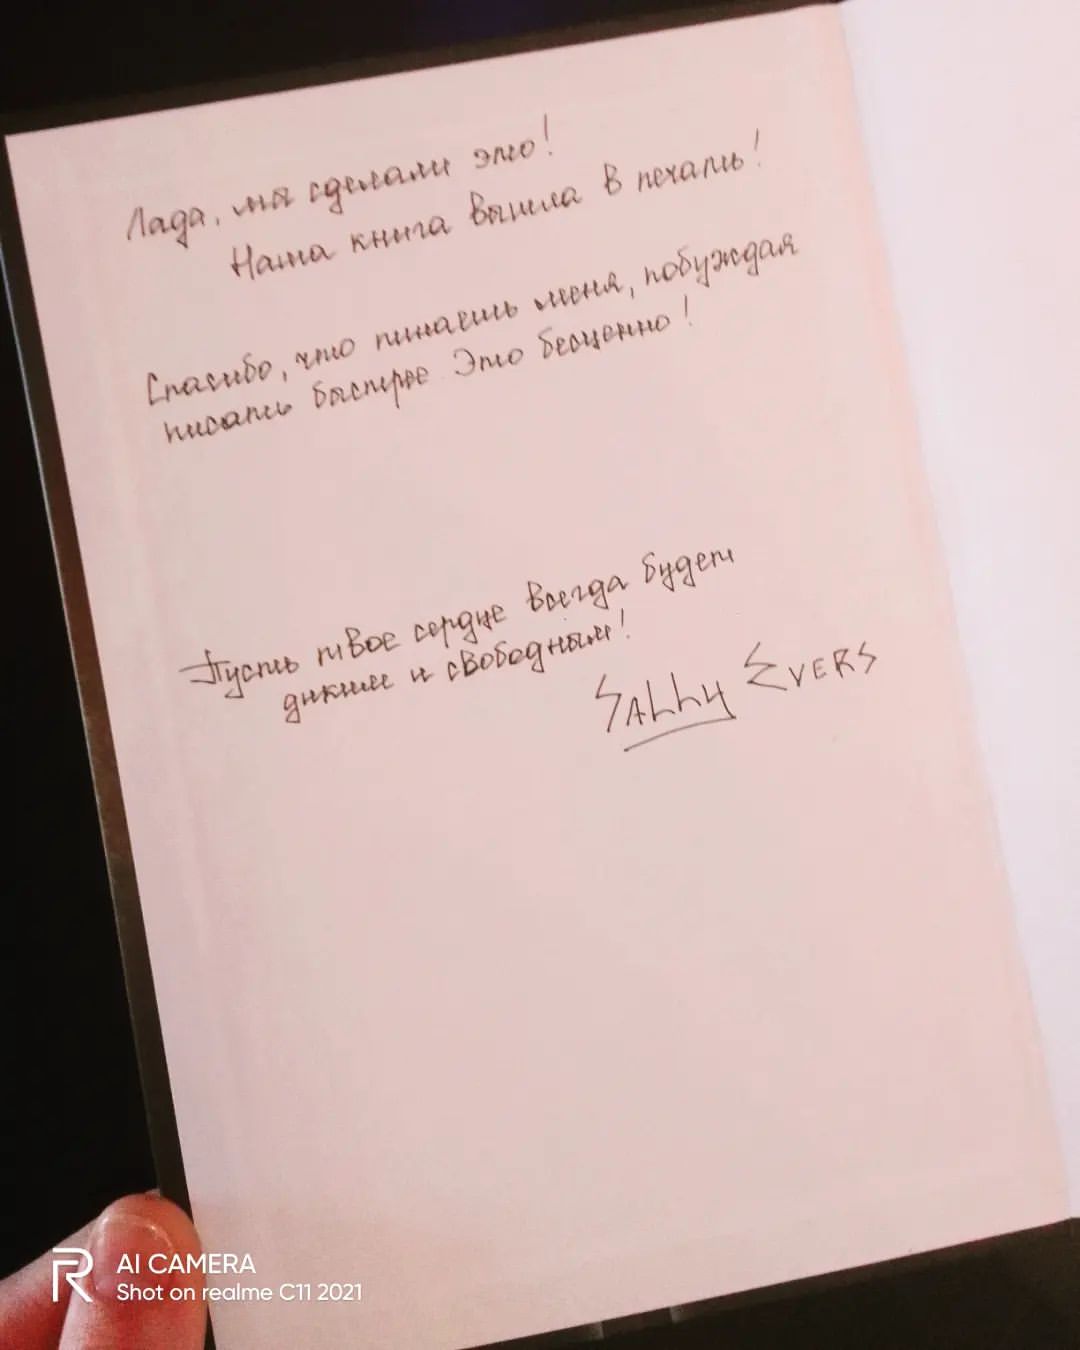 Лада, мы сделали это!
Наша книга вышла в печать!
Спасибо, что пинаешь меня, побуждая
писать быстрее. Это бесценно!
Пусть твое сердце всегда будет
диким и свободным!
Sally Evers
AI CAMERA
Shot on realme C11 2021